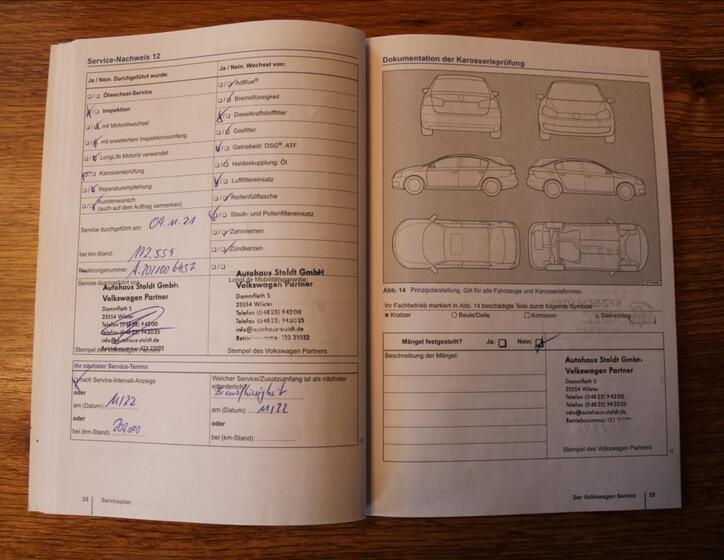 Service-Nachweis 12
Ja / Nein. Durchgeführt wurde:
Ölwechsel-Service
Inspektion
mit Motorölwechsel
mit erweitertem Inspektionsumfang
LongLife Motoröl verwendet
Karosserieprüfung
Reparaturempfehlung
Kundenwunsch
(auch auf dem Auftrag vermerken)
Service durchgeführt am: 09.11.21
bei km-Stand: 172.559
Rechnungsnummer:
Service durchgeführt von:
Autohaus Stoldt GmbH
Volkswagen Partner
Dammfleth 5
25554 Wilster
Telefon (04823) 94200
info@autohaus-stoldt.de
Stempel des Volkswagen Partners
Ja / Nein. Wechsel von:
AdBlue®
Bremsflüssigkeit
Dieselkraftstofffilter
Gasfilter
Getriebeöl: DSG®, ATF
Haldexkupplung: Öl
Luftfiltereinsatz
Reifenfüllflasche
Staub- und Pollenfiltereinsatz
Zahnriemen
Zündkerzen
LongLife Mobilitätsgarantie
Autohaus Stoldt GmbH
Volkswagen Partner
Dammfleth 5
25554 Wilster
Telefon (04823) 94200
Telefax (04823) 942025
info@autohaus-stoldt.de
Stempel des Volkswagen Partners
Ihr nächster Service-Termin
nach Service-Intervall-Anzeige
oder
am (Datum): 11/22
oder
bei (km-Stand): 202000
Welcher Service/Zusatzumfang ist als nächster
erforderlich?
Bremsflüssigkeit
am (Datum): 11/22
oder
bei (km-Stand):
28 Serviceplan
Dokumentation der Karosserieprüfung
Abb. 14 Prinzipdarstellung. Gilt für alle Fahrzeuge und Karosserieformen.
Ihr Fachbetrieb markiert in Abb. 14 beschädigte Teile durch folgende Symbole:
× Kratzer ○ Beule/Delle □ Korrosion Steinschlag
Mängel festgestellt? Ja: Nein:
Beschreibung der Mängel:
Autohaus Stoldt GmbH
Volkswagen Partner
Dammfleth 5
25554 Wilster
Telefon (04823) 94200
Telefax (04823) 942025
info@autohaus-stoldt.de
Stempel des Volkswagen Partners
Der Volkswagen Service 29